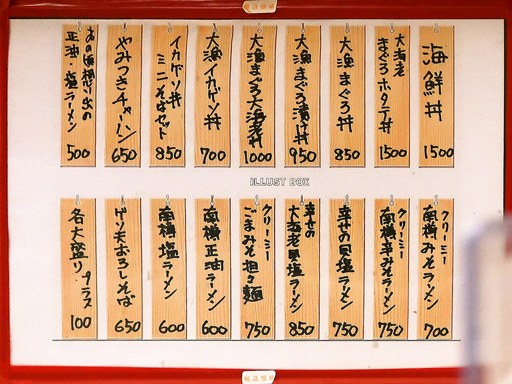 海鮮丼
1500
大海老
まぐろホタテ丼
1500
大漁まぐろ丼
850
大漁まぐろ漬け丼
950
大漁まぐろ大海老丼
1000
大漁イカゲソ丼
700
イカゲソ丼
ミニそばセット
850
やみつきチャーハン
650
あの頃想い出の
正油・塩ラーメン
500
ILLUST BOX
クリーミー
南樽みそラーメン
700
クリーミー
南樽辛みそラーメン
750
幸せの貝塩ラーメン
750
幸せの
大海老貝塩ラーメン
850
クリーミー
ごまみそ担々麺
750
南樽正油ラーメン
600
南樽塩ラーメン
600
ゲソ天おろしそば
650
各大盛り プラス
100